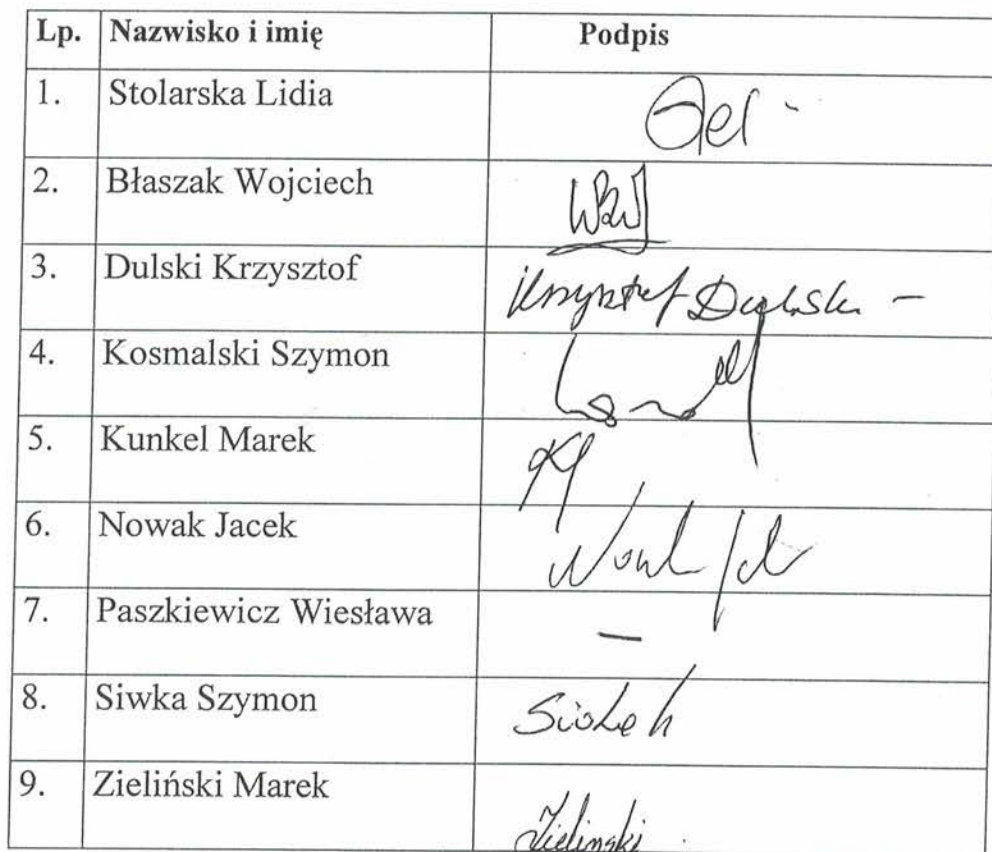 Lp. Nazwisko i imię Podpis
1. Stolarska Lidia
2. Błaszak Wojciech
3. Dulski Krzysztof Krzysztof Dulski -
4. Kosmalski Szymon
5. Kunkel Marek
6. Nowak Jacek
7. Paszkiewicz Wiesława –
8. Siwka Szymon
9. Zieliński Marek Zielinski